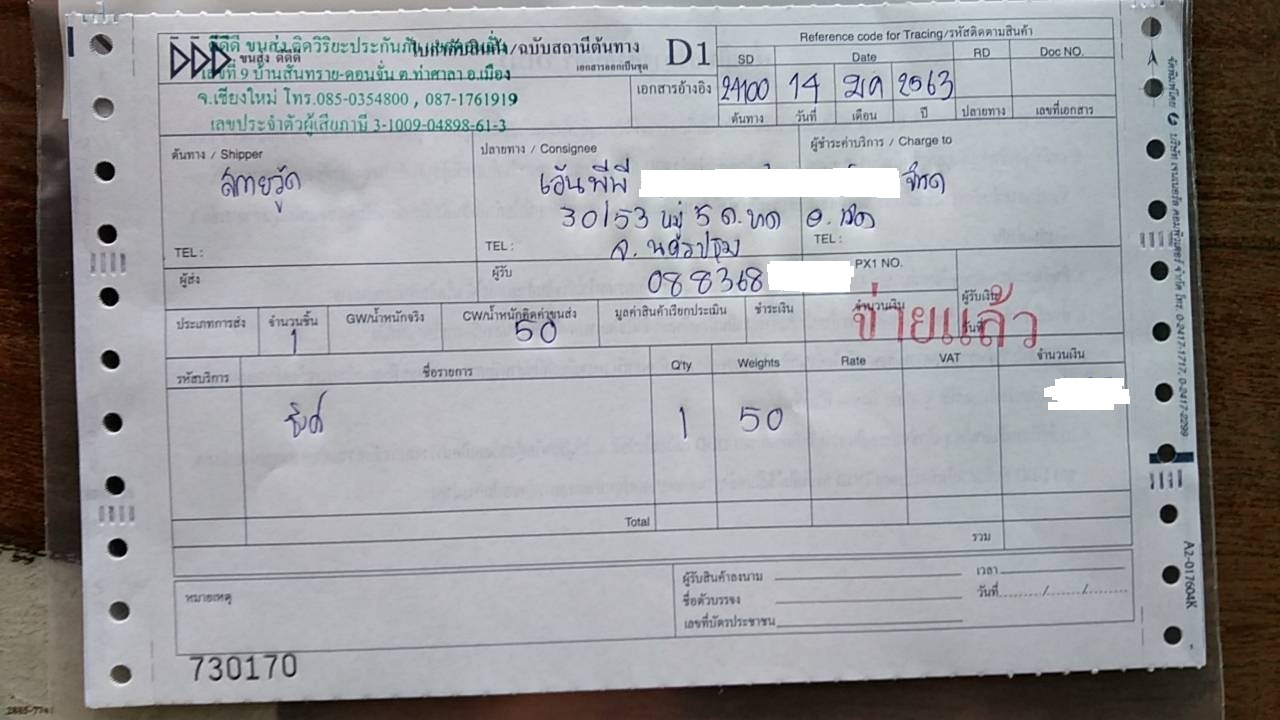 DDD ดีดีดี ขนส่ง
ขนส่ง ดีดีดี
/ฉบับสถานีต้นทาง
เอกสารออกเป็นชุด
D1
เลขที่ 9 บ้านสันทราย-ดอนจั่น ต.ท่าศาลา อ.เมือง
จ.เชียงใหม่ โทร.085-0354800 , 087-1761919
เลขประจำตัวผู้เสียภาษี 3-1009-04898-61-3
Reference code for Tracing/รหัสติดตามสินค้า
SD Date RD Doc NO.
เอกสารอ้างอิง 24100 14 มค 2563
ต้นทาง วันที่ เดือน ปี ปลายทาง เลขที่เอกสาร
ต้นทาง / Shipper ปลายทาง / Consignee ผู้ชำระค่าบริการ / Charge to
เอ็นพีพี
30/53 หมู่ 5
จ. นครปฐม
TEL : TEL : TEL :
ผู้ส่ง ผู้รับ 088368 PX1 NO.
ประเภทการส่ง จำนวนชิ้น GW/น้ำหนักจริง CW/น้ำหนักคิดค่าขนส่ง มูลค่าสินค้าเรียกประเมิน ชำระเงิน จำนวนเงิน ผู้รับเงิน
1 50 วันที่
จ่ายแล้ว
รหัสบริการ ชื่อรายการ Q'ty Weights Rate VAT จำนวนเงิน
1 50
Total
รวม
หมายเหตุ
ผู้รับสินค้าลงนาม เวลา
ชื่อตัวบรรจง วันที่ / /
เลขที่บัตรประชาชน
730170
A2-017604K